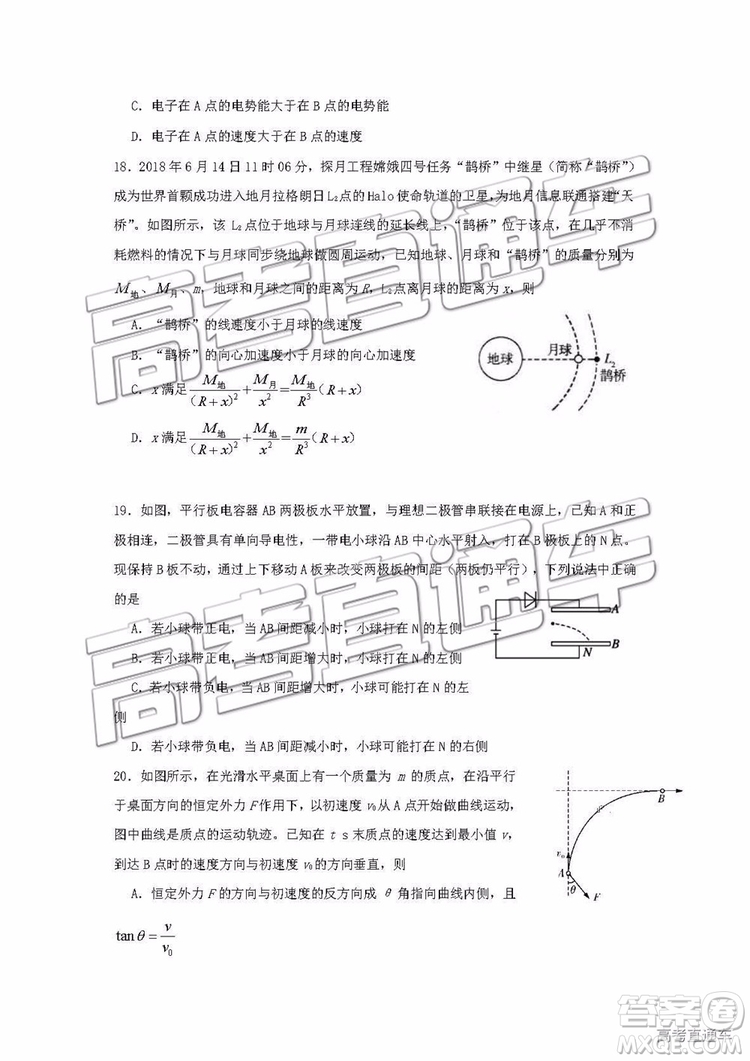 C．电子在 A 点的电势能大于在 B 点的电势能
D．电子在 A 点的速度大于在 B 点的速度
18．2018 年 6 月 14 日 11 时 06 分，探月工程嫦娥四号任务“鹊桥”中继星（简称“鹊桥”）
成为世界首颗成功进入地月拉格朗日 L₂点的 Halo 使命轨道的卫星，为地月信息联通搭建“天
桥”。如图所示，该 L₂点位于地球与月球连线的延长线上，“鹊桥”位于该点，在几乎不消
耗燃料的情况下与月球同步绕地球做圆周运动，已知地球、月球和“鹊桥”的质量分别为
M地、M月、m，地球和月球之间的距离为 R，L₂点离月球的距离为 x，则
A．“鹊桥”的线速度小于月球的线速度
B．“鹊桥”的向心加速度小于月球的向心加速度
C．x 满足 M地/(R+x)² + M月/x² = M地/R³ (R+x)
D．x 满足 M地/(R+x)² + M地/x² = m/R³ (R+x)
地球
月球
L₂
鹊桥
19．如图，平行板电容器 AB 两极板水平放置，与理想二极管串联接在电源上，已知 A 和正
极相连，二极管具有单向导电性，一带电小球沿 AB 中心水平射入，打在 B 极板上的 N 点。
现保持 B 板不动，通过上下移动 A 板来改变两极板的间距（两板仍平行），下列说法中正确
的是
A．若小球带正电，当 AB 间距减小时，小球打在 N 的左侧
B．若小球带正电，当 AB 间距增大时，小球打在 N 的左侧
C．若小球带负电，当 AB 间距增大时，小球可能打在 N 的左
侧
D．若小球带负电，当 AB 间距减小时，小球可能打在 N 的右侧
A
B
N
20．如图所示，在光滑水平桌面上有一个质量为 m 的质点，在沿平行
于桌面方向的恒定外力 F 作用下，以初速度 v₀从 A 点开始做曲线运动，
图中曲线是质点的运动轨迹。已知在 t s 末质点的速度达到最小值 v，
到达 B 点时的速度方向与初速度 v₀的方向垂直，则
A．恒定外力 F 的方向与初速度的反方向成 θ 角指向曲线内侧，且
tanθ = v/v₀
B
v₀
A
θ
F
高考直通车
高考直通车
答案圈
高考直通车
MXQE.COM